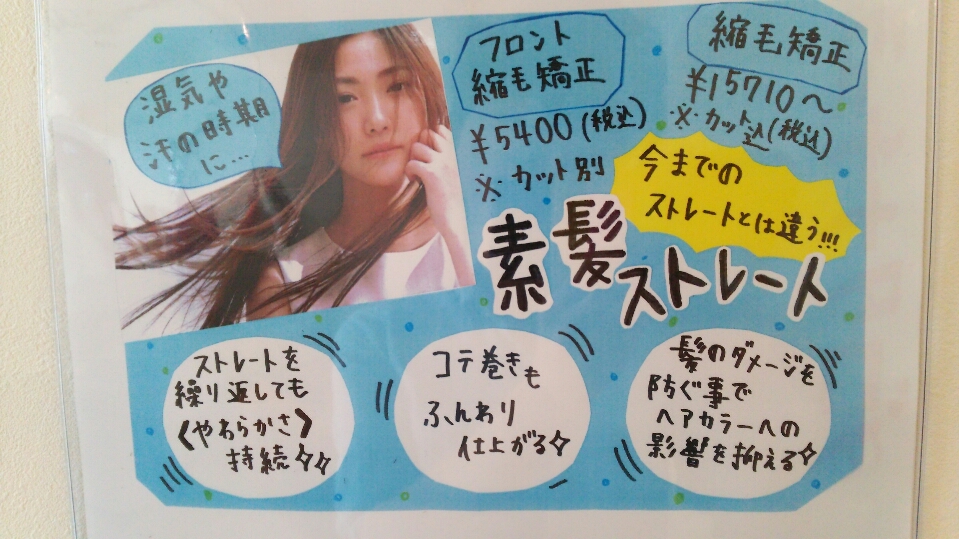 湿気や
汗の時期
に…
フロント
縮毛矯正
¥5400(税込)
※カット別
縮毛矯正
¥15710〜
※カット込(税込)
今までの
ストレートとは違う!!!
素髪ストレート
ストレートを
繰り返しても
〈やわらかさ〉
持続
コテ巻きも
ふんわり
仕上がる
髪のダメージを
防ぐ事で
ヘアカラーへの
影響を抑える